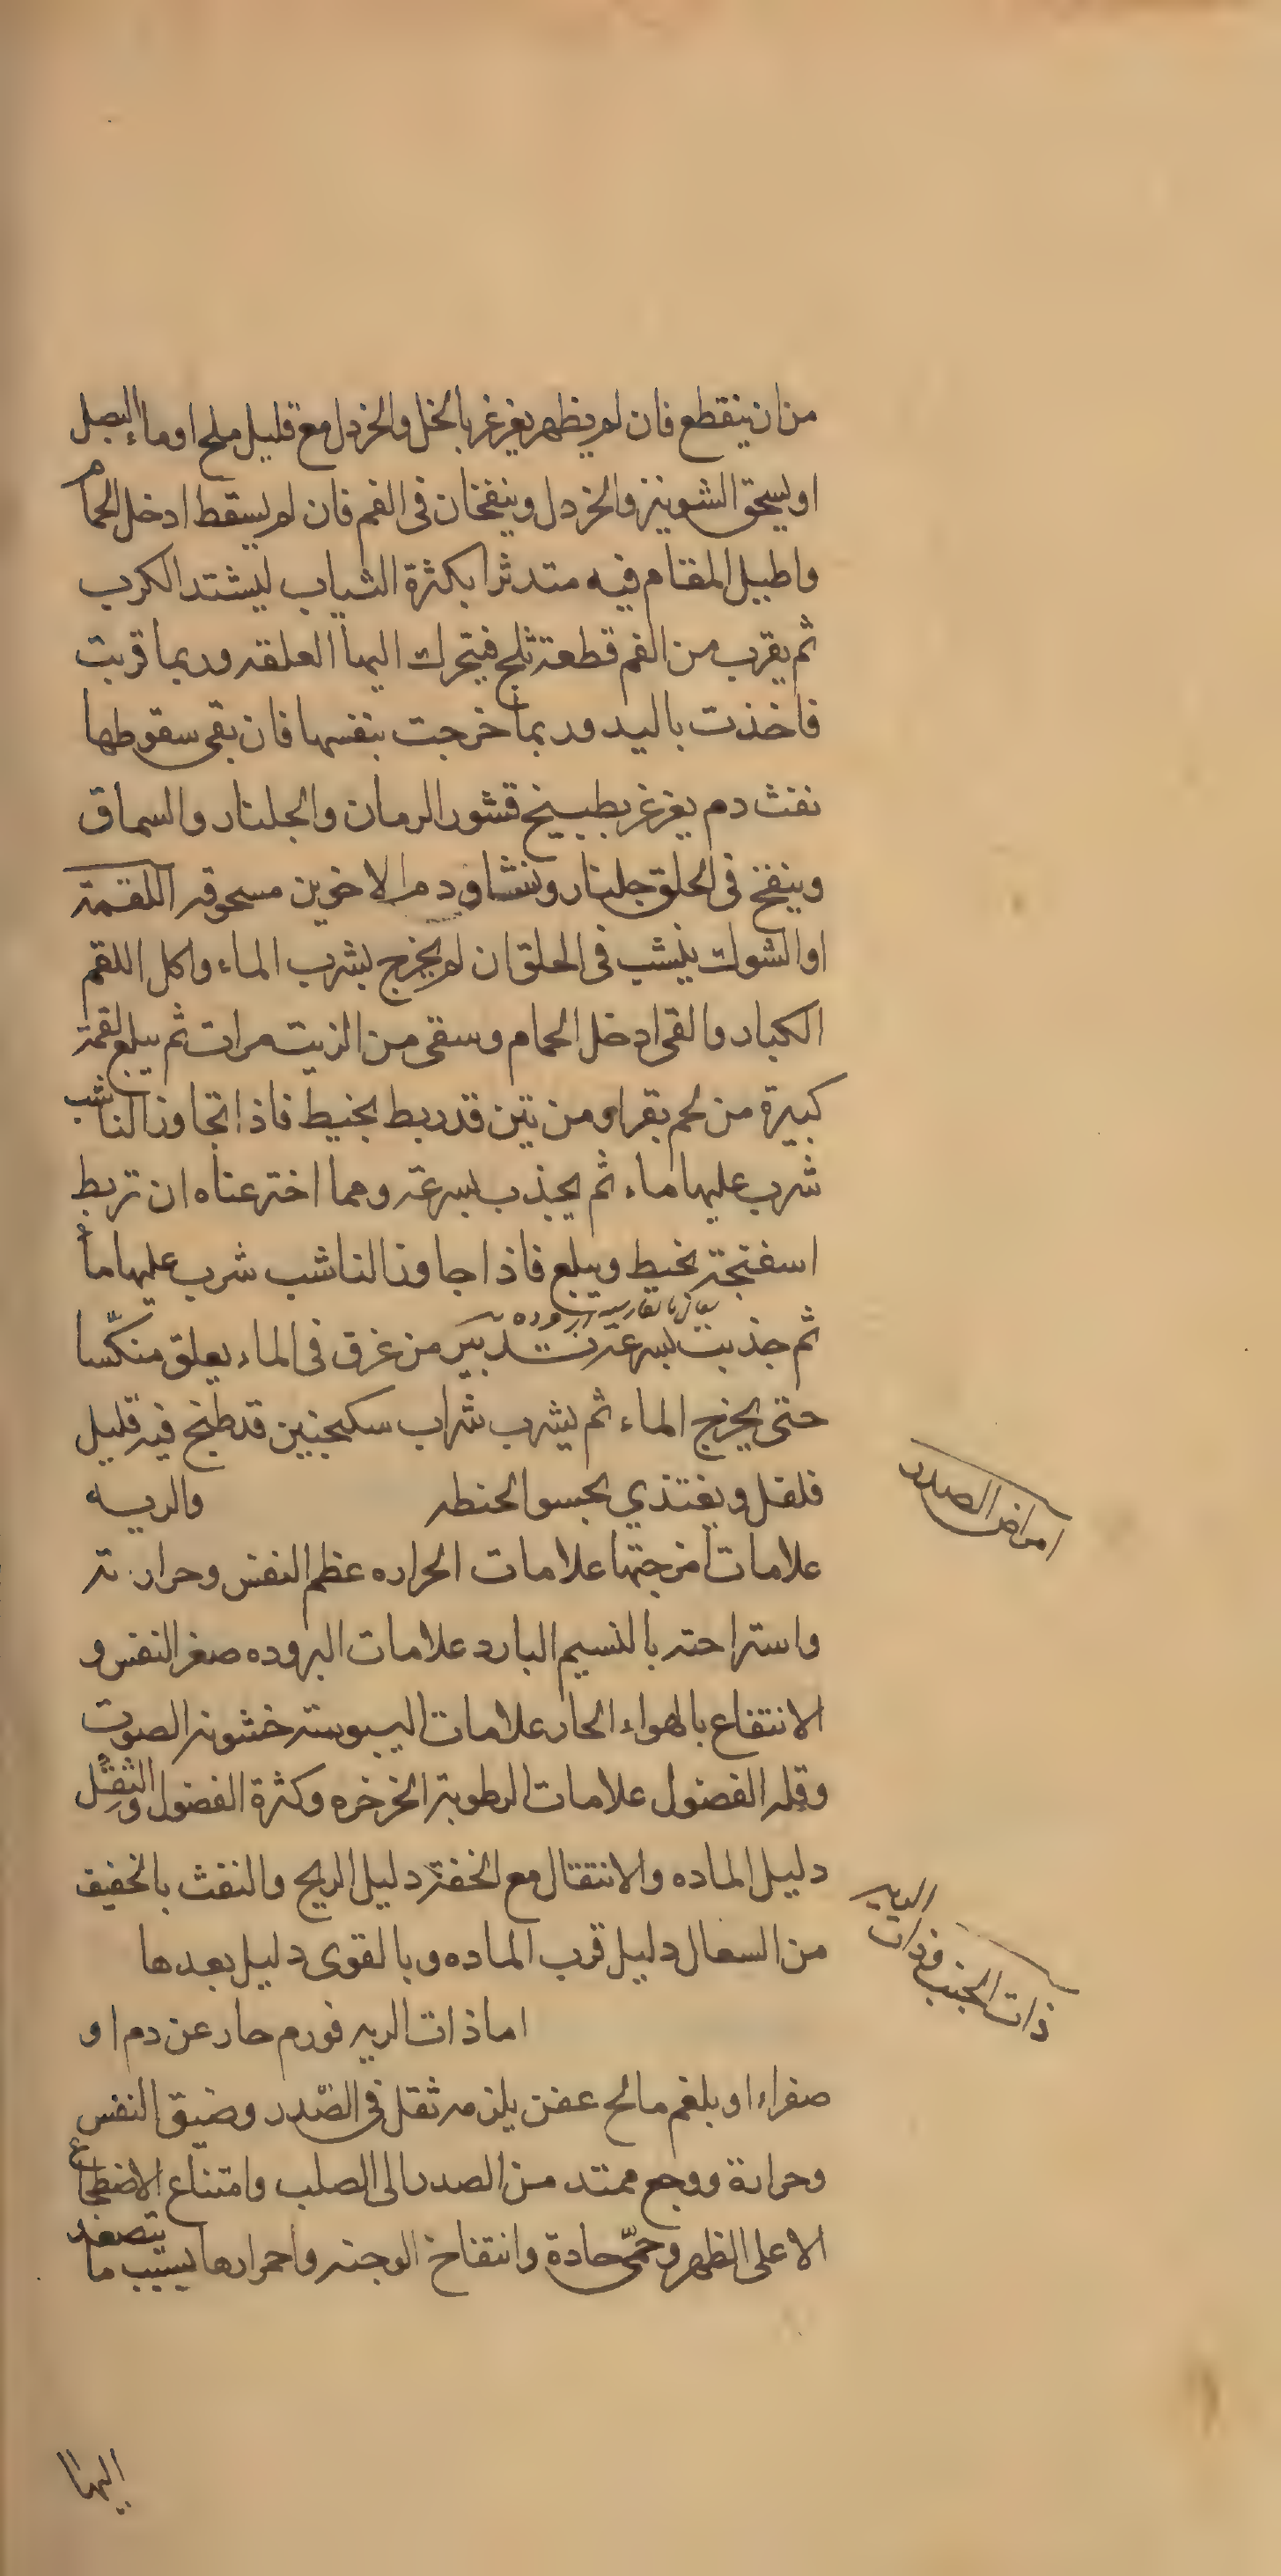 من ان ينقطع فان لم يظهر يغرغر بالخل والخردل مع قليل ملح او ماء البصل
او يسحق الشونيز والخردل وينفخان فى الفم فان لم يسقط ادخل الحمام
واطيل المقام فيه متدثرا بكثرة الثياب ليشتد الكرب
ثم يقرب من الفم قطعة ثلج فيتحرك اليها العلقه وربما قربت
فاخذت باليد وربما خرجت بنفسها فان بقى سقوطها
نفث دم يغرغر بطبيخ قشور الرمان والجلنار والسماق
وينفخ فى الحلق جلنار ونشا ودم الاخوين مسحوقه اللقمة
او الشوك ينشب فى الحلق ان لم يخرج بشرب الماء واكل اللقم
الكبار والقى ادخل الحمام وسقى من الزيت مرات ثم يبلع لقمة
كبيرة من لحم بقر او من تين قد ربط بخيط فاذا تجاوز الناشب
شرب عليها ماء ثم يجذب بسرعة ومما اخترعناه ان تربط
اسفنجة بخيط ويبلع فاذا جاوز الناشب شرب عليها ماء
ثم جذبت بسرعة تدبير من غرق فى الماء يعلق منكّسا
حتى يخرج الماء ثم يشرب شراب سكنجبين قد طبخ فيه قليل
فلفل ويغتذي بحسو الحنطه والريه
امراض الصدر
علامات امزجتها علامات الحراره عظم النفس وحرارته
واستراحته بالنسيم البارد علامات البروده صغر النفس و
الانتفاع بالهواء الحار علامات اليبوسة خشونة الصوت
وقله الفضول علامات الرطوبة الخرخره وكثرة الفضول والثقل
دليل الماده والانتقال مع الخفة دليل الريح والنفث بالخفيف
من السعال دليل قرب الماده وبالقوى دليل بعدها
ذات الجنب وذات الريه
اما ذات الريه فورم حار عن دم او
صفراء او بلغم مالح عفن يلزمه ثقل فى الصّدر وضيق النفس
وحرارة ووجع ممتد من الصدر الى الصلب وامتناع الاضطجاع
الا على الظهر وحمّى حادة وانتفاخ الوجنه واحمرارها بسبب ما يتصعد
اليها